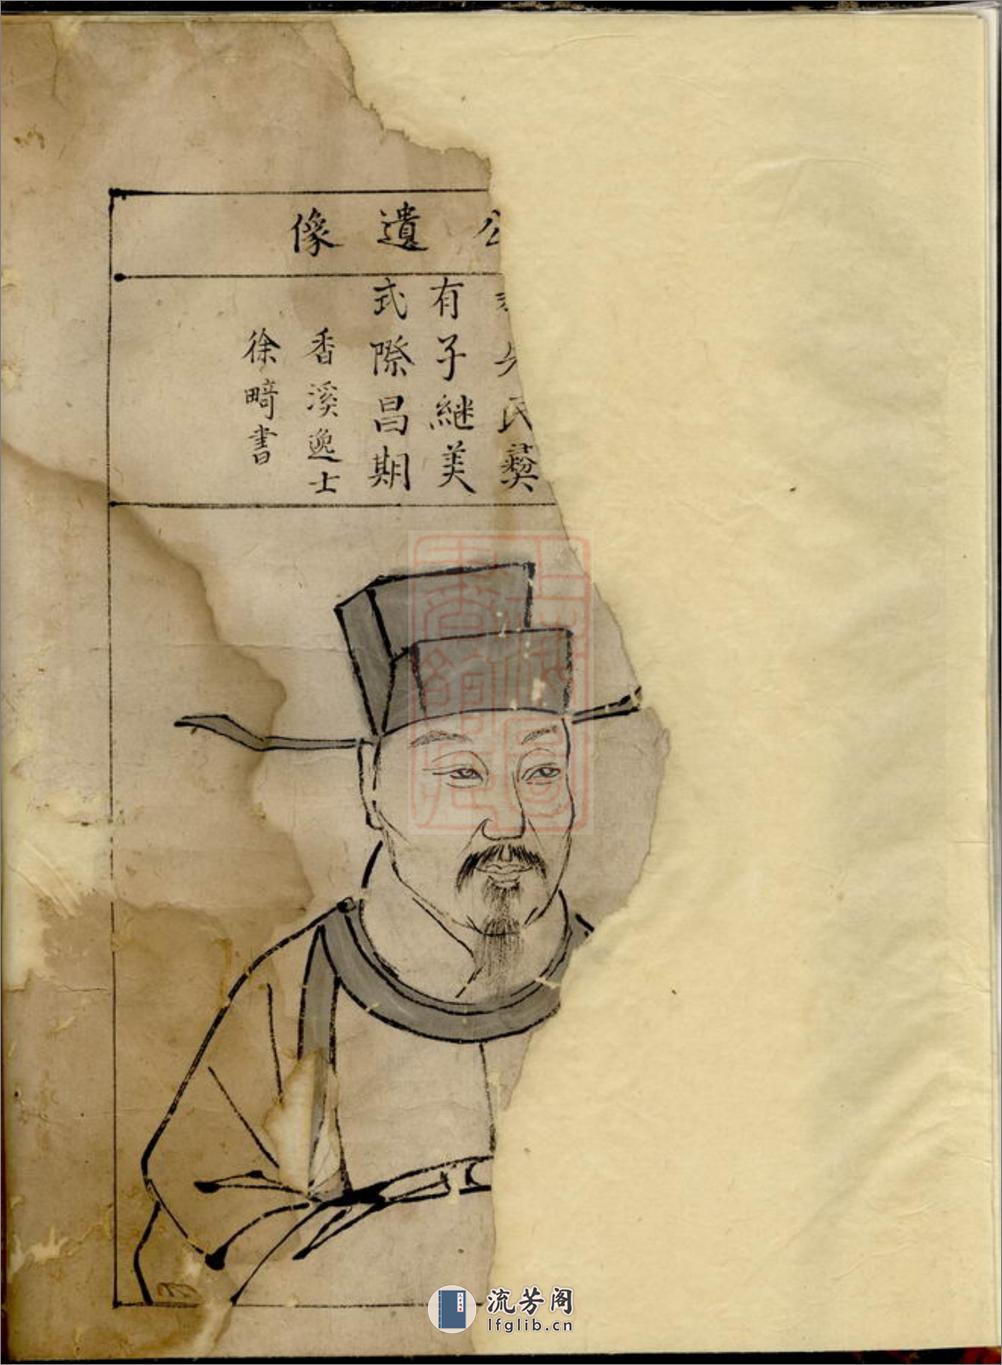 公遺像
民彝
有子継美
式際昌期
香溪逸士
徐畸書
流芳阁
lfglib.cn